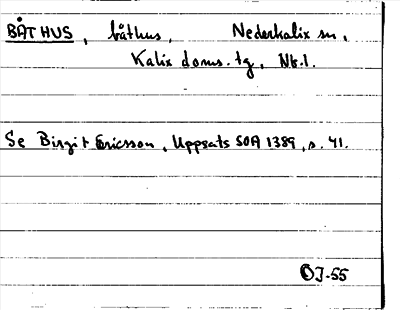 BÅTHUS, båthus, Nederkalix sn,
Kalix doms. tg, Nb.l.
Se Birgit Ericsson, Uppsats SOA 1389, s. 41.
OJ-55